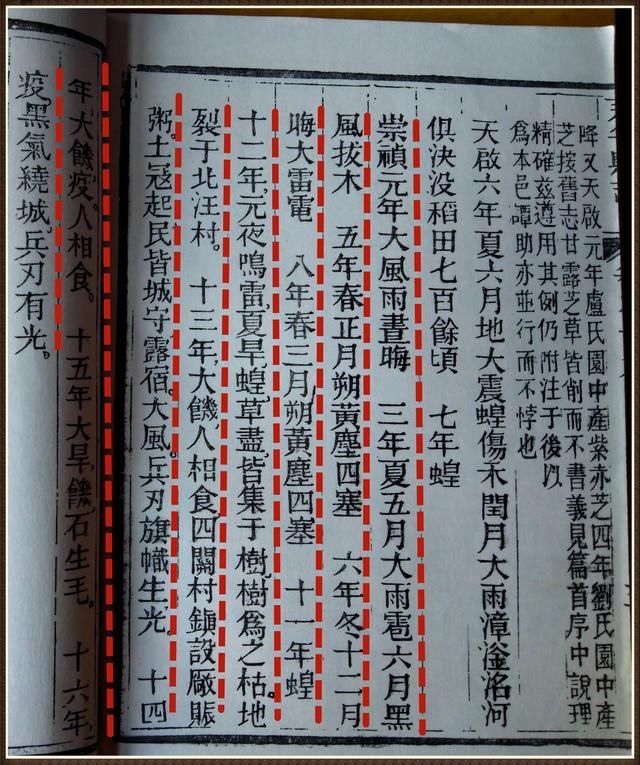 降又天啟元年盧氏園中產紫赤芝四年劉氏園中產
芝按舊志甘露芝草皆削而不書義見篇首序中說理
精確茲遵用其例仍附注于後以
為本邑譚助亦並行而不悖也
天啟六年夏六月地大震蝗傷禾閏月大雨漳滏洺河
俱決没稻田七百餘頃　七年蝗
崇禎元年大風雨晝晦　三年夏五月大雨雹六月黑
風拔木　五年春正月朔黃塵四塞　六年冬,十二月
晦大雷電　八年春三月朔黃塵四塞　十一年蝗
十二年,元夜鳴雷,夏旱蝗,草盡,皆集于樹,樹為之枯。地
裂于北汪村。　十三年,大饑,人相食,四關村鎮設廠賑
粥。土寇起,民皆城守露宿。大風,兵刃旗幟生光。　十四
年大饑,疫,人相食。　十五年大旱,饑,石生毛。　十六年,
疫,黑氣繞城。兵刃有光。